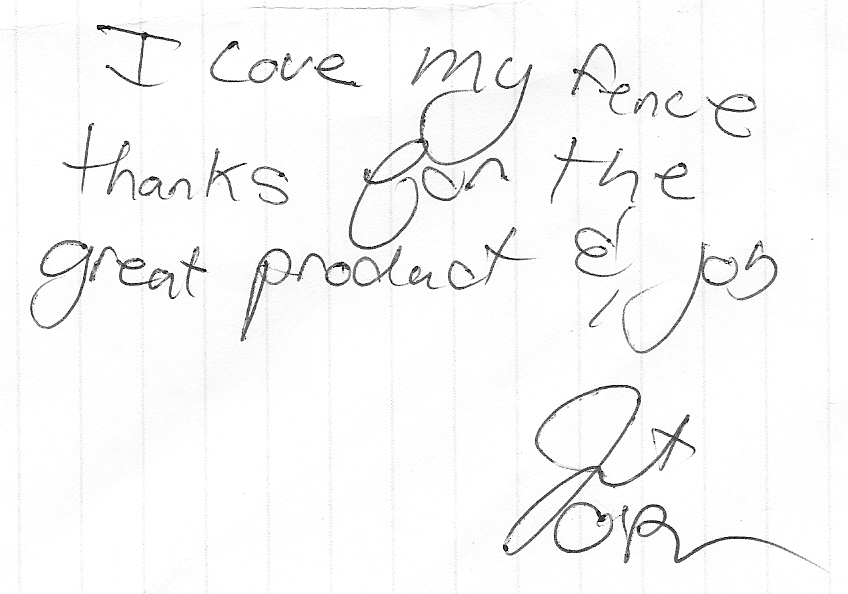 I love my fence
thanks for the
great product & job